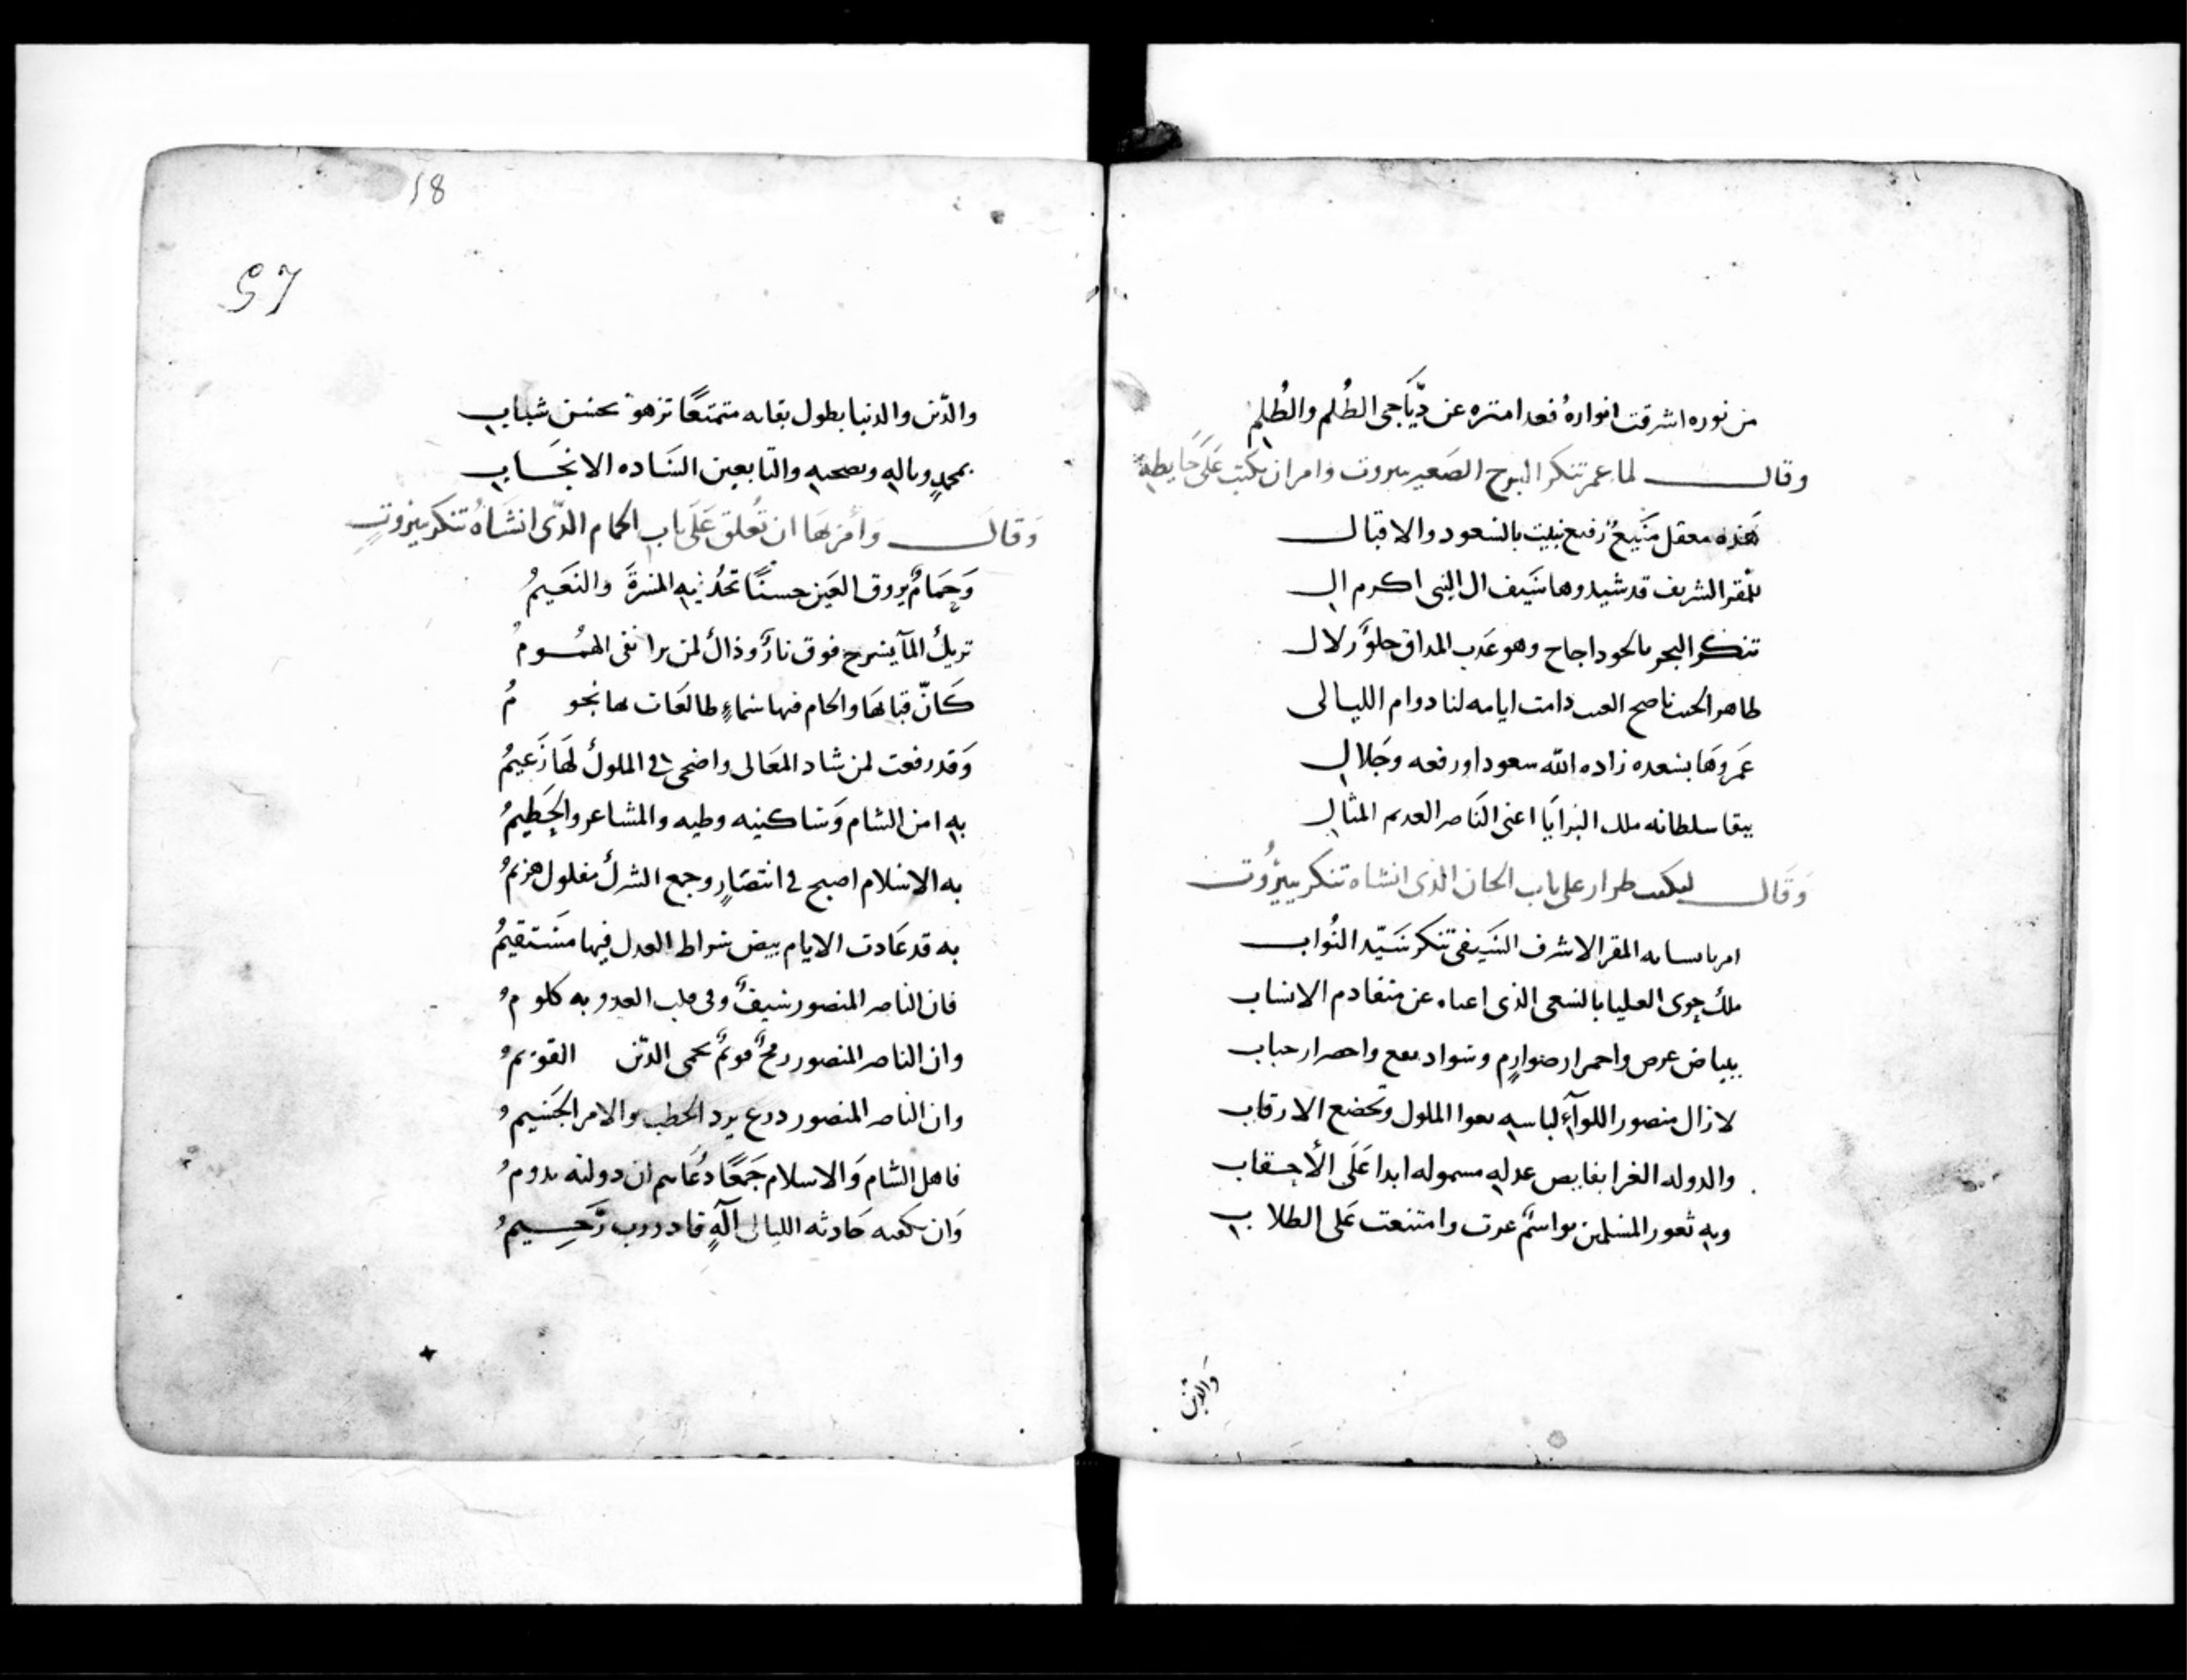 من نوره اشرقت انواره فغدا منزه عن دياجى الظُلم والظُلمِ
وقال لما عمر تنكز البرج الصغير ببيروت وامر ان يكتب على حايطه
هذه معقل منيع رفيع بنيت بالسعود والاقبال
للمقر الشريف قد شيدوها سيف ال النبى اكرم ال
تنكز البحر بالجود اجاج وهو عذب المذاق حلو زلال
طاهر الجيب ناصح الغيب دامت ايامه لنا دوام الليالى
عمروها بسعده زاده الله سعودا ورفعه وجلال
ببقا سلطانه ملك البرايا اعنى الناصر العديم المثال
وقال ليكتب طراز على باب الخان الذى انشاه تنكز ببيروت
امر بانسايه المقر الاشرف السيفى تنكز سيّد النُواب
ملك حوى العليا بالسعى الذى اغناه عن متقادم الانساب
ببياض عرض واحمرار صوارمٍ وسواد نقع واخضرار جناب
لا زال منصور اللوآء لباسه تعنوا الملوك وتخضع الارقاب
والدوله الغرا بفايض عدله مشموله ابدا على الأحقاب
وبه ثغور المسلمين بواسمٌ عزت وامتنعت على الطلاب
والدين
58
57
والدّين والدنيا بطول بقايه متمتعًا تزهو بحسن شبابِ
بمحمدٍ وباله وبصحبه والتابعين السّاده الانجَابِ
وقال وأمر بها ان تُعلق على باب الحمام الذّى انشاهُ تنكز ببيروت
وحَمامٌ يروق العين حسنًا تحدُ به المسرة والنعيمُ
تريك المآ يسرح فوق نارٌ وذاك لمن يرا نفى الهمُومُ
كانّ قبابها والجام فيها سماءٍ طالعات بها نجومُ
وقد رفعت لمن شاد المعالى واضحى فى الملوك لها زعيمُ
به امن الشام وساكنيه وطيبه والمشاعر والحطيمُ
به الاسلام اصبح فى انتصارٍ وجمع الشرك مفلول هزيمُ
به قد عادت الايام بيض سراط العدل فيها مستقيمُ
فان الناصر المنصور سيفٌ وفى قلب العدو به كلومُ
وان الناصر المنصور رمحٌ قويمٌ يحمى الدّين القويمُ
وان الناصر المنصور درع يرد الخطب والامر الجسيمُ
فاهل الشام والاسلام جمعًا دُعَاهم ان دولته تدومُ
وان يكفيه حادثه الليالى الهٍ قادر رب رّحيمُ